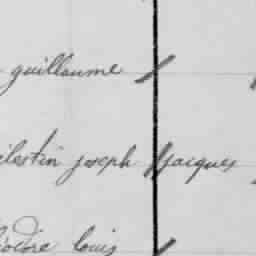 guillaume
élestin joseph jacques
odore louis